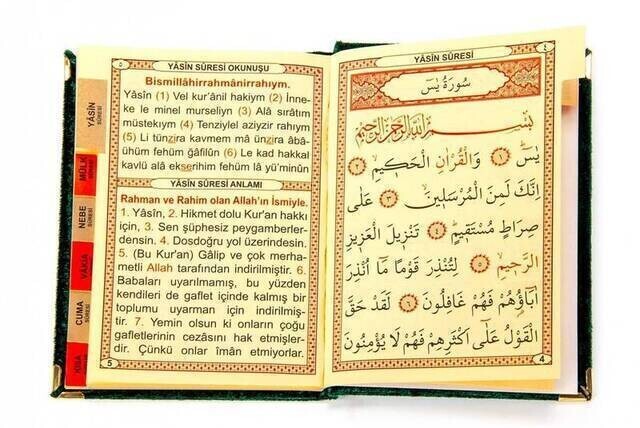 ٤
YÂSİN SÛRESİ
سُورَةُ يٰسٓ
بِسْمِ اللّٰهِ الرَّحْمٰنِ الرَّحٖيمِ
يٰسٓ ﴿١﴾ وَالْقُرْاٰنِ الْحَكٖيمِ ﴿٢﴾
اِنَّكَ لَمِنَ الْمُرْسَلٖينَ ﴿٣﴾ عَلٰى
صِرَاطٍ مُسْتَقٖيمٍ ﴿٤﴾ تَنْزٖيلَ الْعَزٖيزِ
الرَّحٖيمِ ﴿٥﴾ لِتُنْذِرَ قَوْمًا مَٓا اُنْذِرَ
اٰبَٓاؤُ۬هُمْ فَهُمْ غَافِلُونَ ﴿٦﴾ لَقَدْ حَقَّ
الْقَوْلُ عَلٰٓى اَكْثَرِهِمْ فَهُمْ لَا يُؤْمِنُونَ
4
٥
YÂSİN SÛRESİ OKUNUŞU
Bismillâhirrahmânirrahıym.
Yâsîn (1) Vel kur'ânil hakiym (2) İnne-
ke le minel murseliyn (3) Alâ sırâtım
müstekıym (4) Tenziylel aziyzir rahıym
(5) Li tünzira kavmem mâ ünzira âbâ-
ühüm fehüm ğâfilûn (6) Le kad hakkal
kavlü alâ ekserihim fehüm lâ yü'minûn
YÂSİN SÛRESİ ANLAMI
Rahman ve Rahim olan Allah'ın İsmiyle.
1. Yâsîn, 2. Hikmet dolu Kur'an hakkı
için, 3. Sen şüphesiz peygamberler-
densin. 4. Dosdoğru yol üzerindesin.
5. (Bu Kur'an) Gâlip ve çok merha-
metli Allah tarafından indirilmiştir. 6.
Babaları uyarılmamış, bu yüzden
kendileri de gaflet içinde kalmış bir
toplumu uyarman için indirilmiş-
tir. 7. Yemin olsun ki onların çoğu
gafletlerinin cezasını hak etmişler-
dir. Çünkü onlar îmân etmiyorlar.
5
YÂSİN
SÛRESİ
MÜLK
SÛRESİ
NEBE
SÛRESİ
VÂKIA
SÛRESİ
CUMA
SÛRESİ
KISA